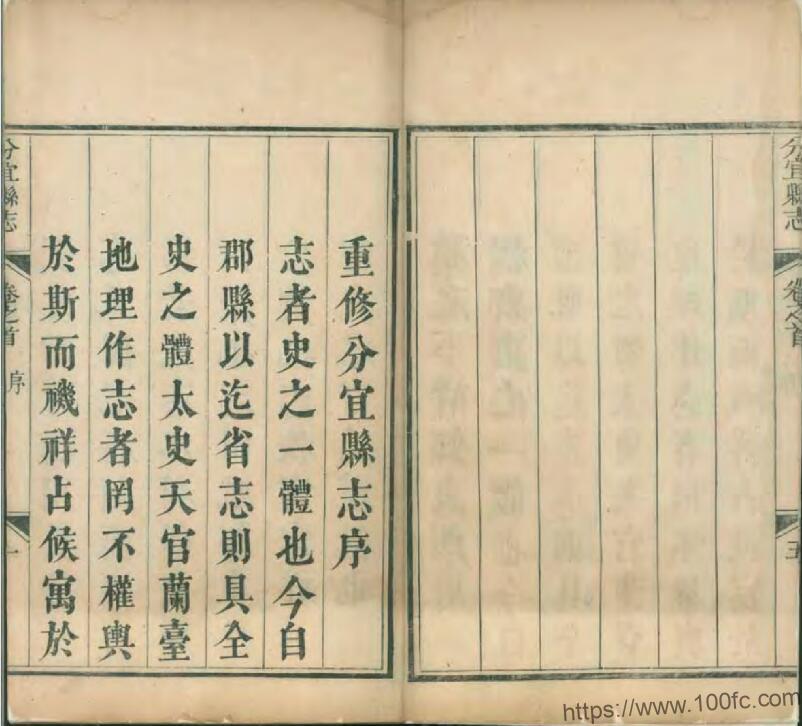 分宜縣志
卷之首
五
重修分宜縣志序
志者史之一體也今自
郡縣以迄省志則具全
史之體太史天官蘭臺
地理作志者罔不權輿
於斯而禨祥占候寓於
分宜縣志
卷之首
序
一
https://www.100fc.com